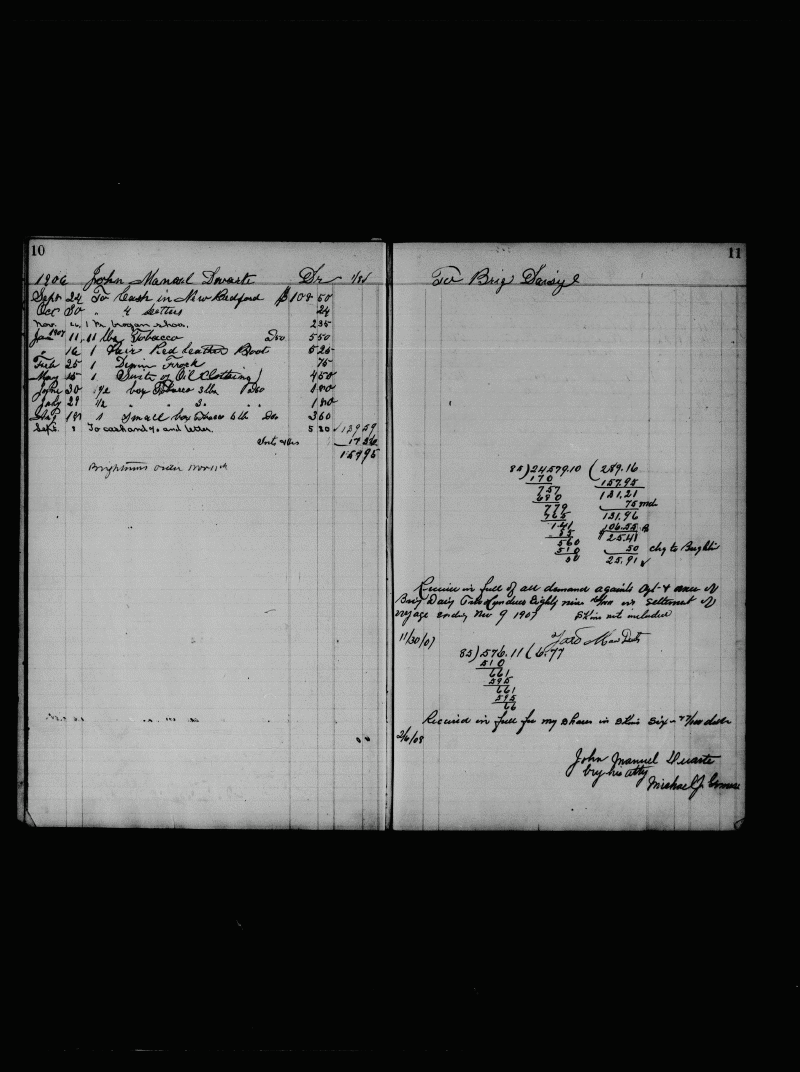 10
1906 John Manuel Duarte Dr 1/85
Sept 24 To Cash in New Bedford $108 50
Oct 30 " 4 letters 24
Nov. 1 Pr. brogan shoes. 2 35
Jan 1907 11 11 lbs Tobacco 5 50
" 16 1 Pair Red Leather Boot 5 25
Feb 25 1 Denim Frock 75
May 15 1 Suite of Oil Clothing 4 50
30 1/2 box Tobacco 3 lbs 1 80
July 29 1/2 " " 3. " 1 80
1 small box tobacco 6 lb 3 60
Sept. 8 To cash and letter. 5 30 139 59
17 36
159 95
Brightmans order Nov 11th
11
To Brig Daisy
85)24579.10(289.16
170 157.95
757 131.21
680 75 md
779 131.96
765 106.55
1 41 25.41
85 50 chg to Brightm
560 25.91
510
50
Receive in full of all demand againts Cpt & owner of
Brig Daisy Two Hundred Eighty nine 16/100 in settlement of
voyage ending Nov 9 1907 Skins not included
11/30/07
85)576.11(6.77
510
661
595
661
595
66
Received in full for my shares in Skins Six & 77/100 dolls
2/6/08
John Manuel Duarte
by his atty
Michael J.